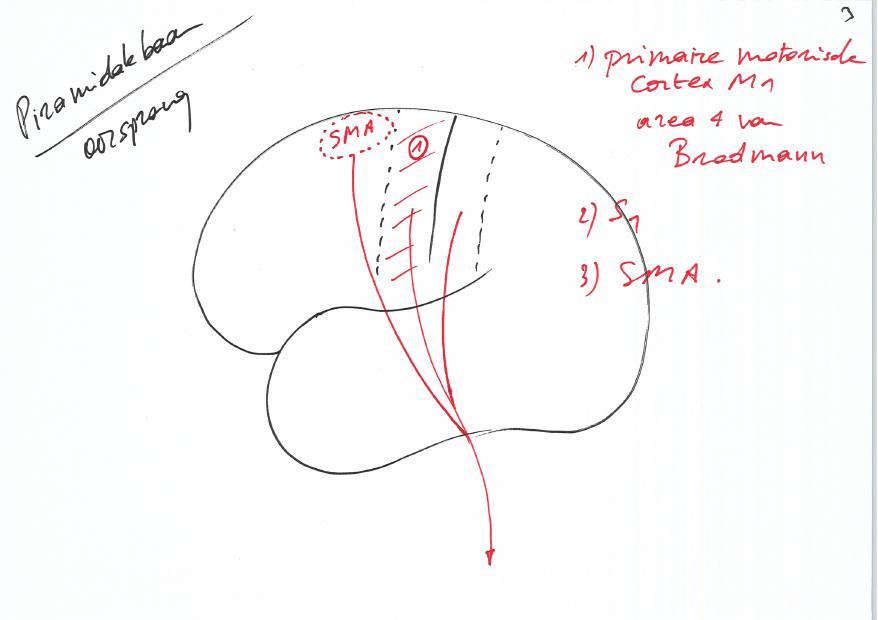 3
Piramidale baan
oorsprong
1) primaire motorische
Cortex M1
area 4 van
Brodmann
SMA
1
2) S1
3) SMA.